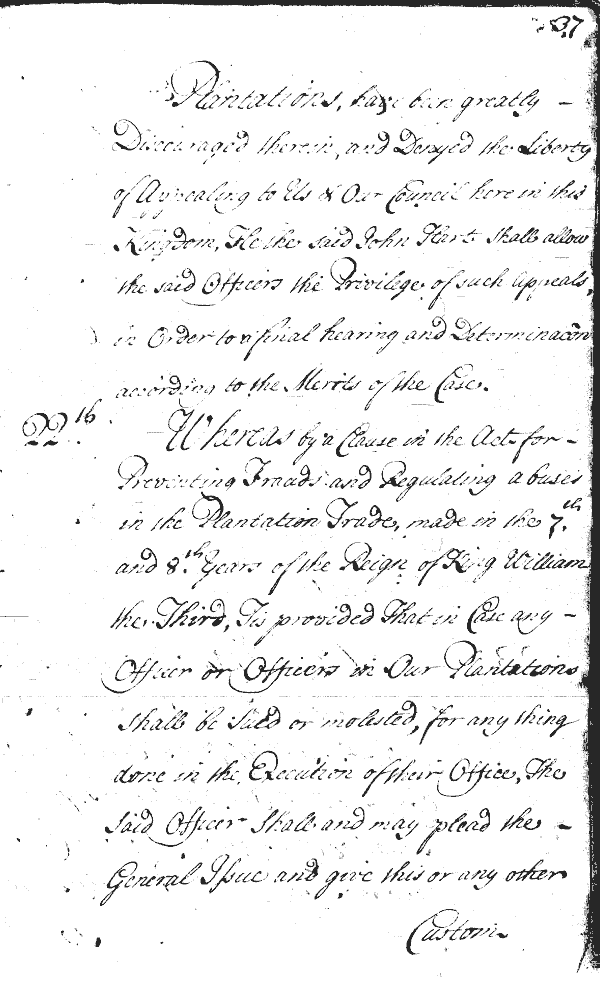 37
Plantations, have been greatly –
Discouraged therein, and Denyed the Liberty
of Appealing to Us & Our Council here in this
Kingdom, He the said John Hart shall allow
the said Officers the Privilege of such Appeals,
in Order to a final hearing and Determinacon
according to the Merits of the Case.
22th. Whereas by a Clause in the Act for –
Preventing Frauds and Regulating abuses
in the Plantation Trade, made in the 7.th
and 8.th Years of the Reign of King William
the Third, Tis provided That in Case any –
Officer or Officers in Our Plantations
shall be Sued or molested, for any thing
done in the Execution of their Office, The
said Officer shall and may plead the –
General Issue and give this or any other
Custom